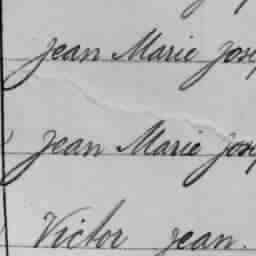 Jean Marie Jose
Jean Marie Jose
Victor Jean.